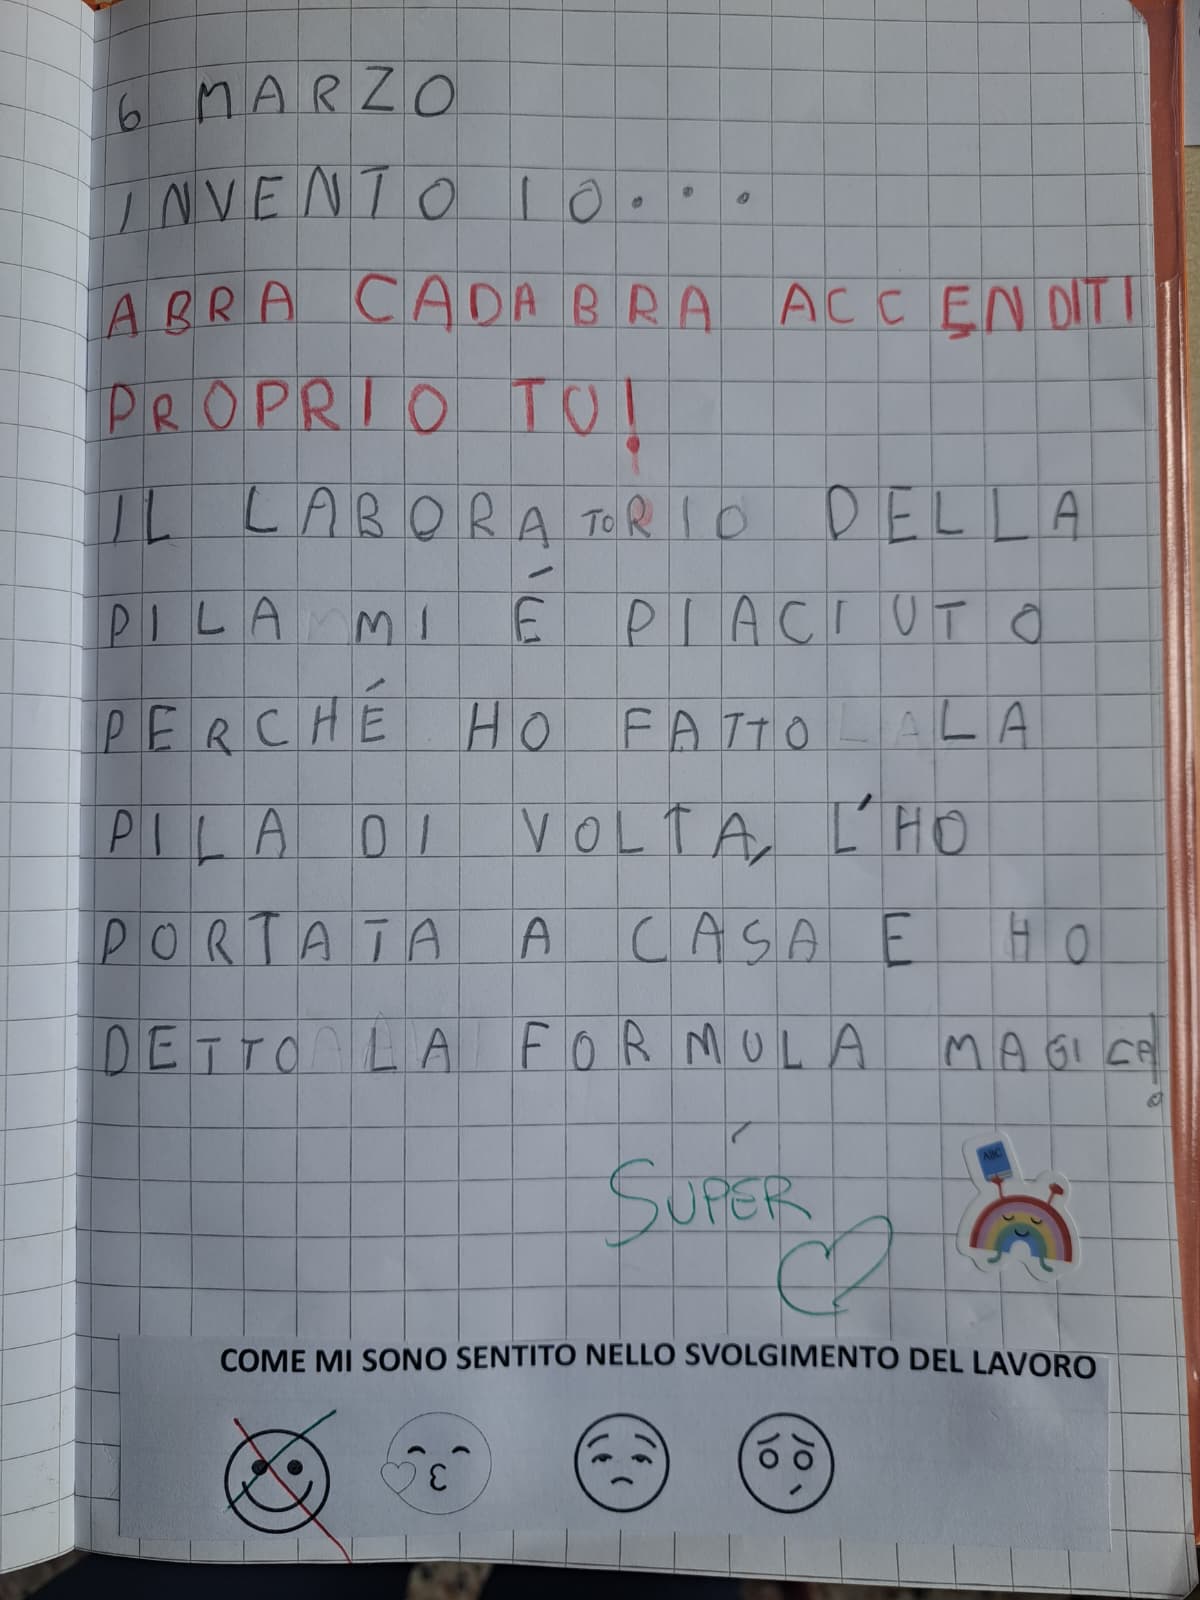 6 MARZO
INVENTO IO...
ABRA CADABRA ACCENDITI
PROPRIO TU!
IL LABORATORIO DELLA
PILA MI É PIACIUTO
PERCHÉ HO FATTO LA
PILA DI VOLTA, L'HO
PORTATA A CASA E HO
DETTO LA FORMULA MAGICA!
SUPÉR
ABC
COME MI SONO SENTITO NELLO SVOLGIMENTO DEL LAVORO